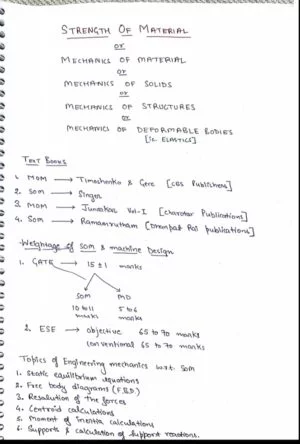 STRENGTH OF MATERIAL
or
MECHANICS OF MATERIAL
or
MECHANICS OF SOLIDS
or
MECHANICS OF STRUCTURES
or
MECHANICS OF DEFORMABLE BODIES
[ie. ELASTICS]
TEXT BOOKS
1. MOM → Timoshenko & Gere [CBS Publishers]
2. SOM → Singer
3. MOM → Junarkar Vol-I [charotar Publications]
4. Som → Ramamrutham [Dhanpat Rai publications]
Weightage of SOM & machine Design
1. GATE → 15 ± 1 marks
SOM MD
10 to 11 5 to 6
marks marks
2. ESE → objective 65 to 70 marks
conventional 65 to 70 marks
Topics of Engineering mechanics w.r.t. SOM
1. Static equilibrium equations
2. Free body diagrams (F.B.D)
3. Resolution of the forces
4. Centroid calculations
5. Moment of inertia calculations
6. Supports & calculation of support reactions.